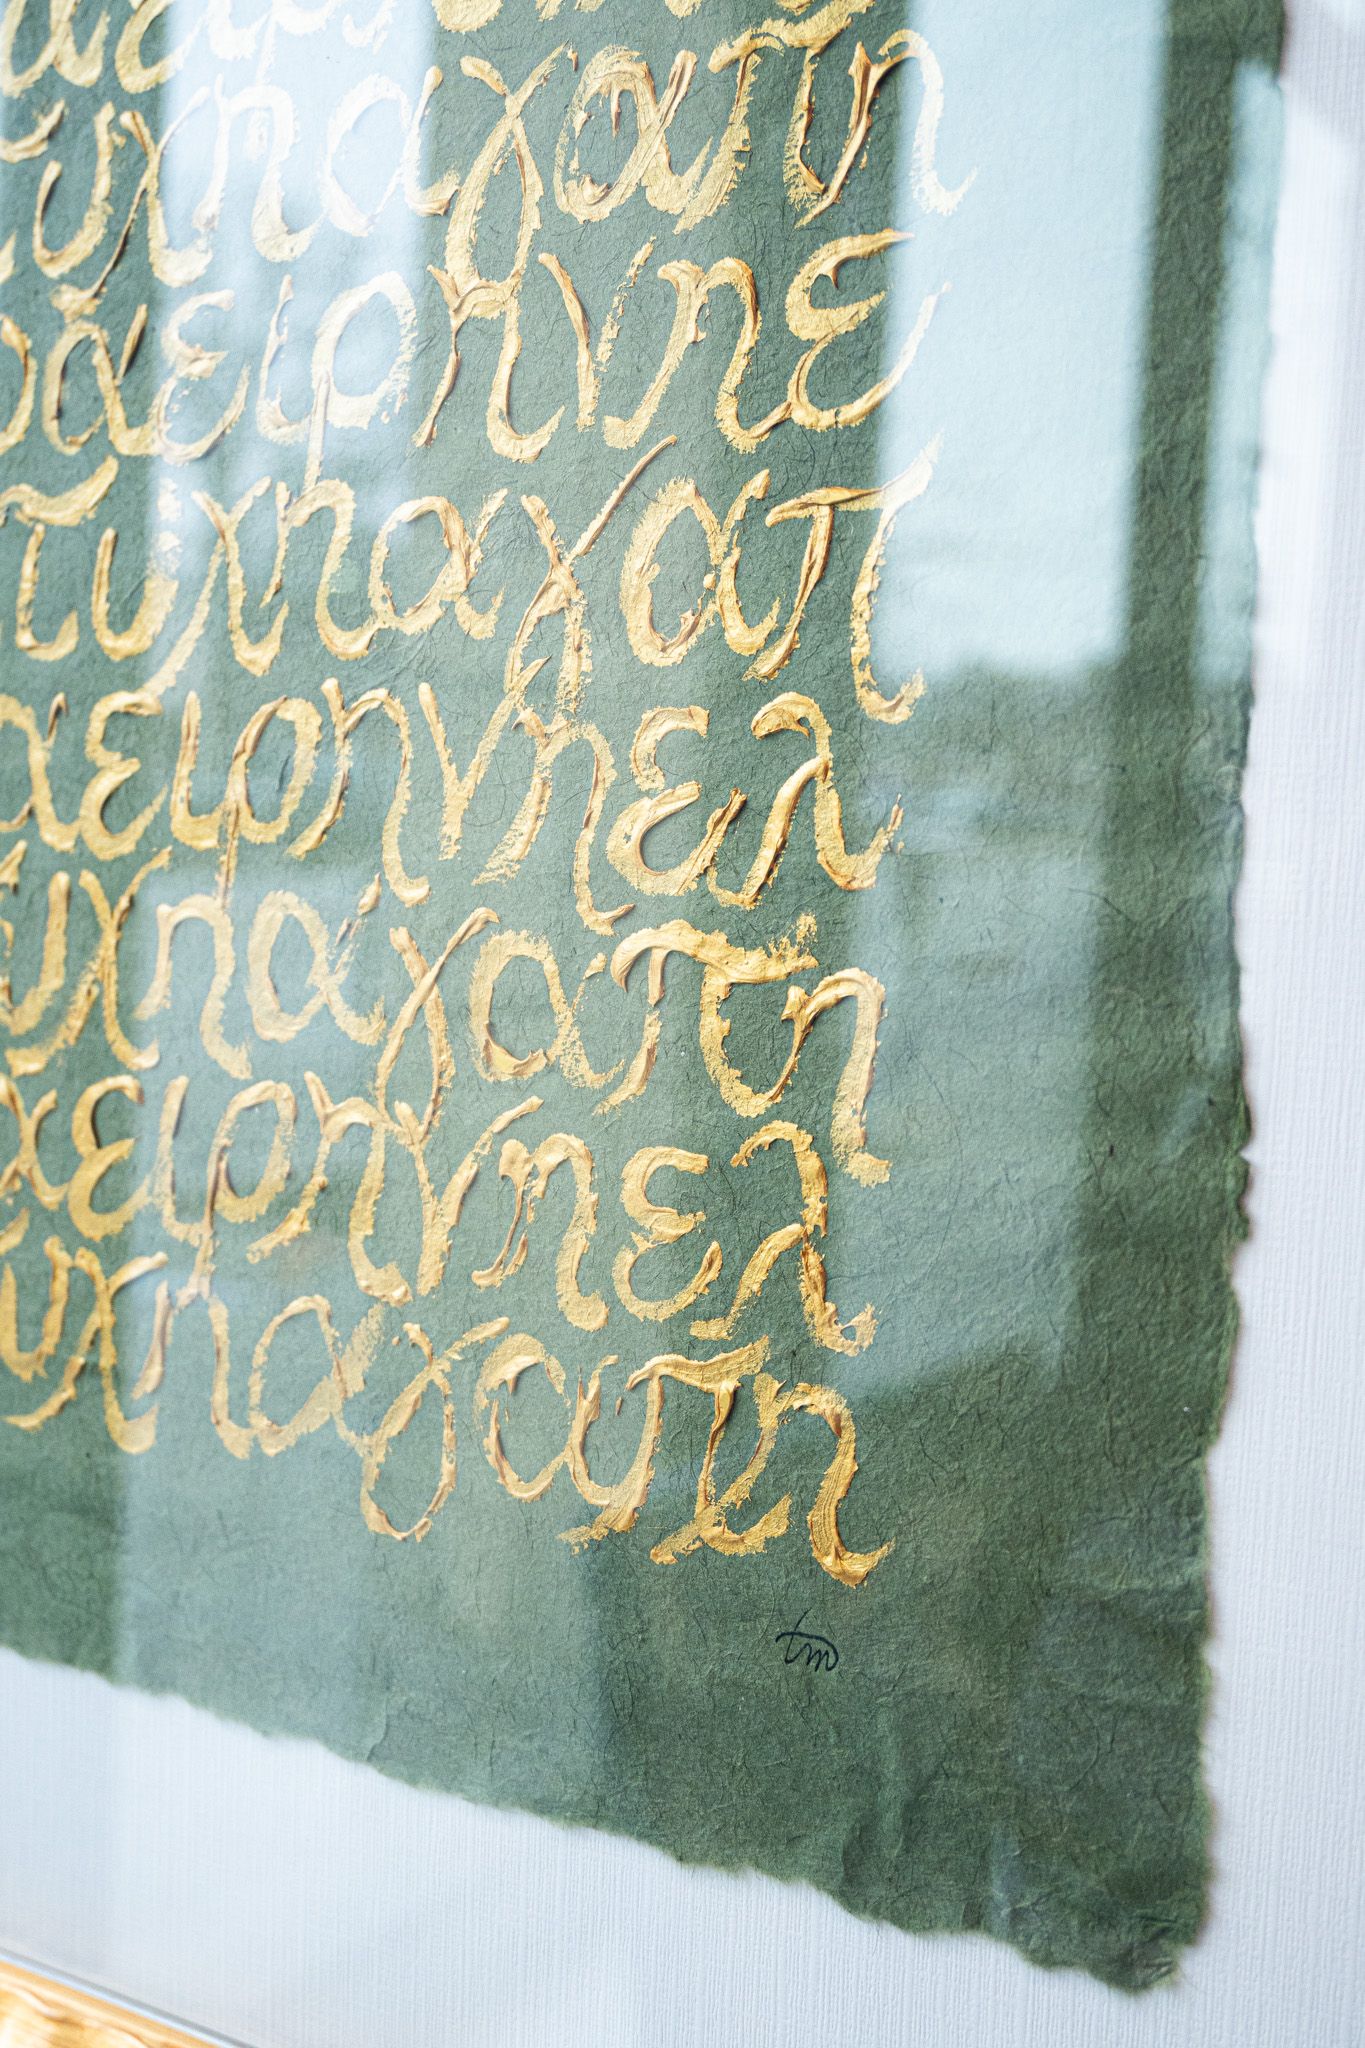 τυχηαγαπη
ραειρηνηε
τυχηαγαπ
αειρηνηελ
υχηαγαπη
αειρηνηελ
υχηαγαπη
tm